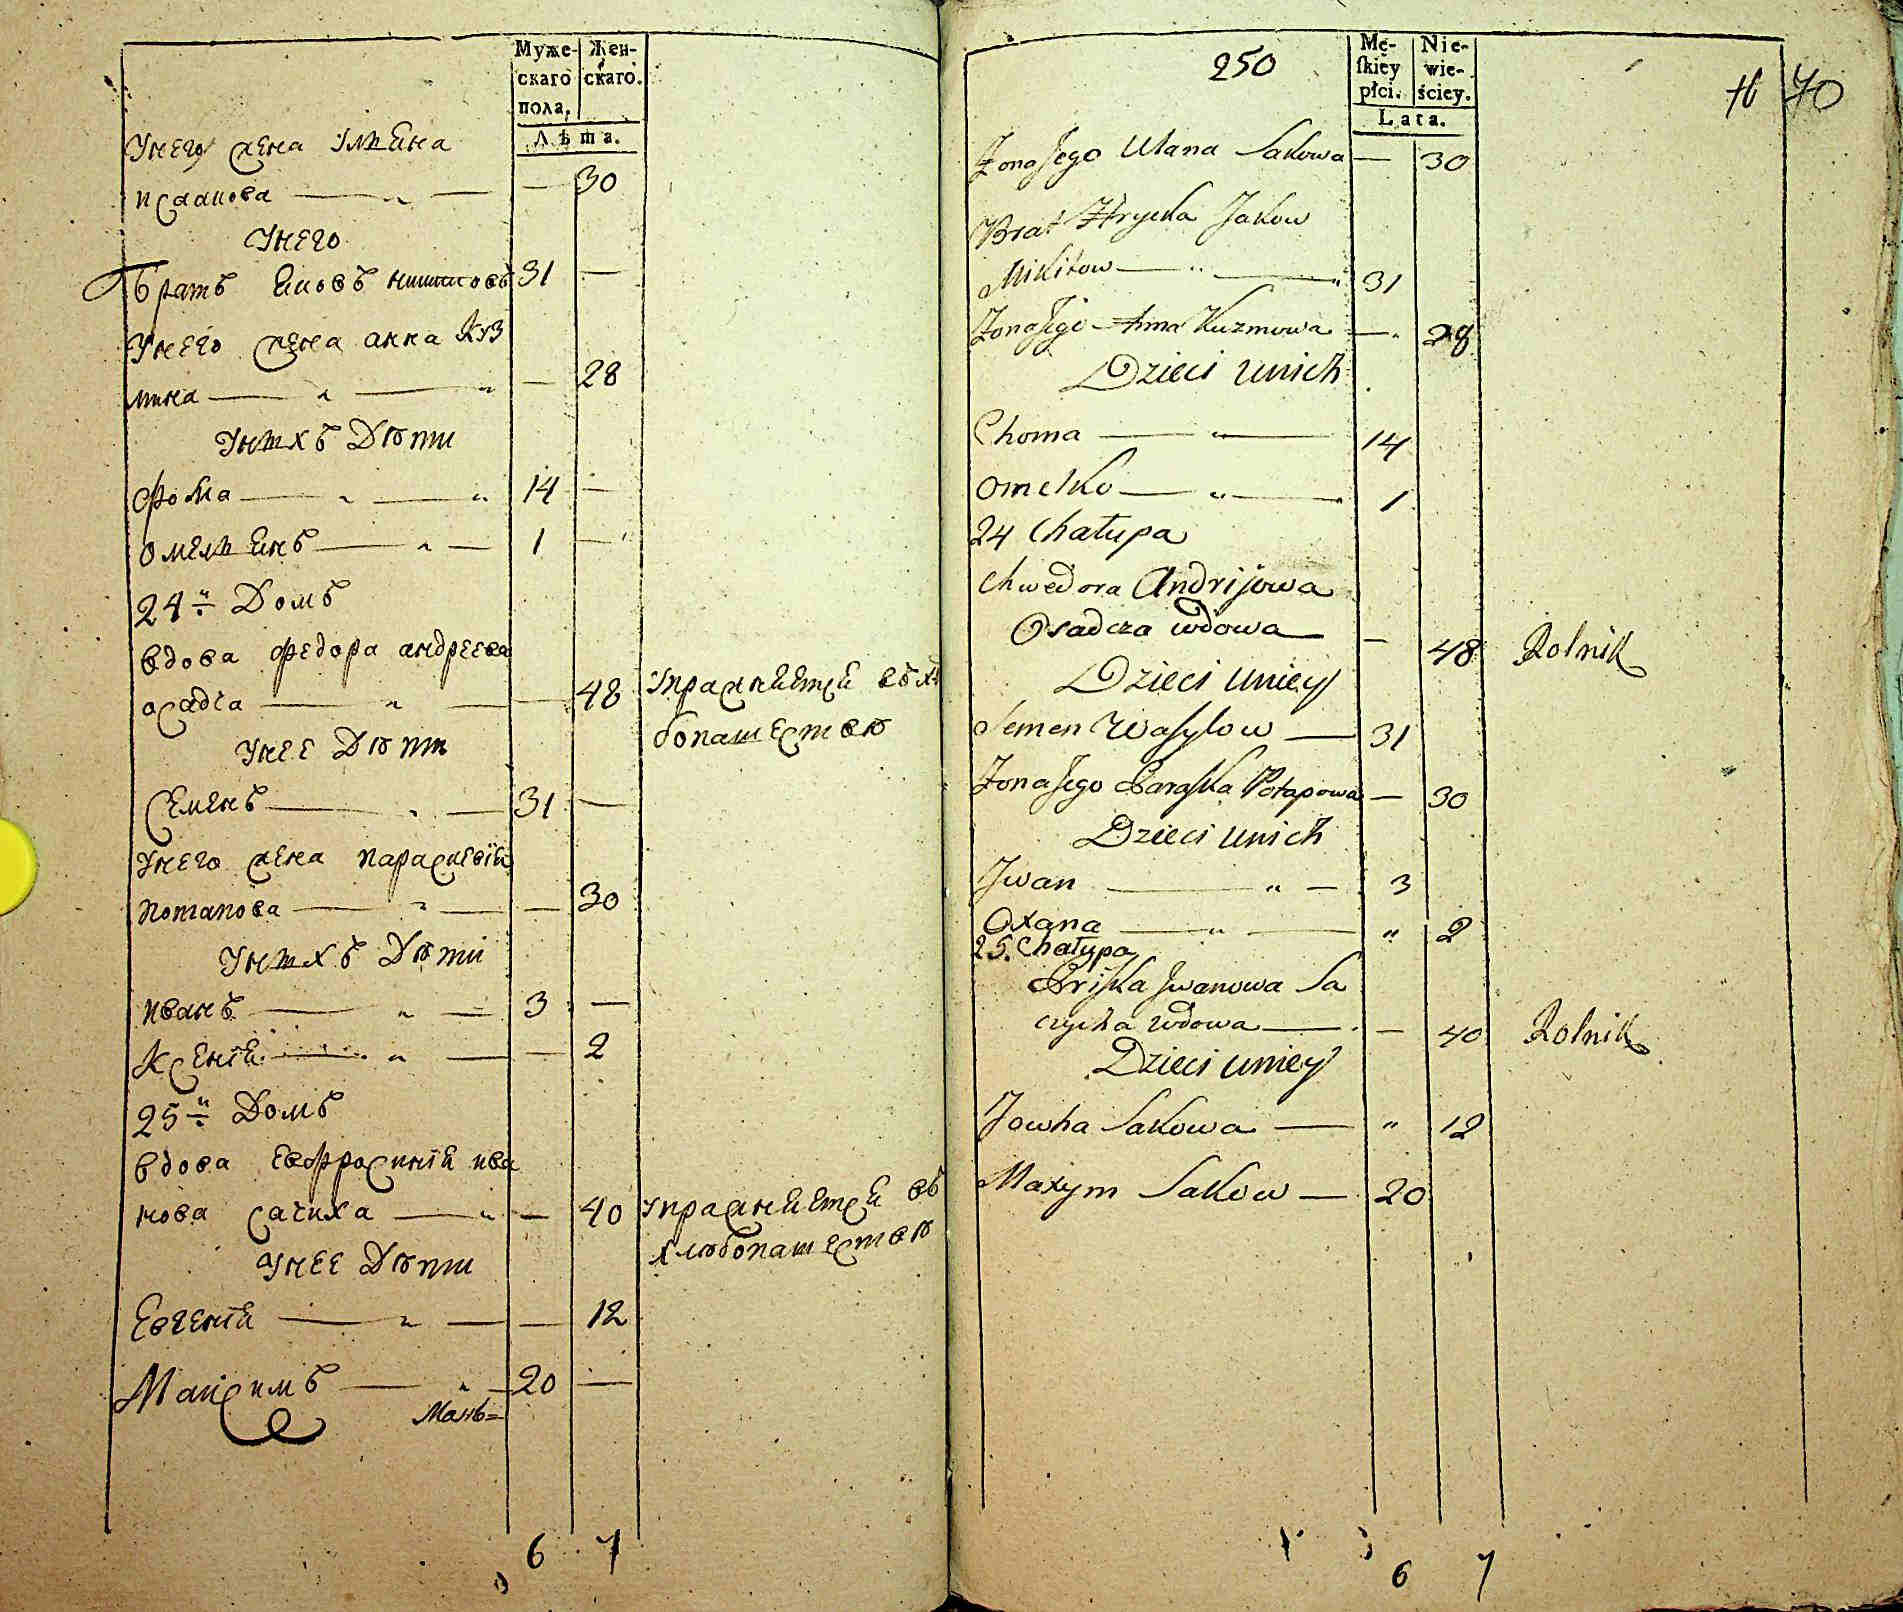 Муже-
скаго
пола.
Жен-
скаго.
Лѣта.
Унего жена Улиѧна
исаакова — „ — — 30
Унего
братъ Яковъ никитовъ 31 —
Унего жена анна Куз
мина — „ — „ — 28
Унихъ Дѣти
фома — „ — „ 14 —
омелиянъ — „ — 1 —
24й Домъ
вдова федора андреева
осадча — „ — — 48 Упражняется въ хлѣ
бопашествѣ
Унее Дѣти
Семенъ — „ — 31 —
Унего жена параскевия
потапова — „ — — 30
Унихъ Дѣти
иванъ — „ — 3 —
Ксения — „ — — 2
25й Домъ
вдова евфросиния ива
нова сачиха — „ — 40 Упражняется въ
хлѣбопашествѣ
Унее Дѣти
Евгения — „ — — 12
Максимъ — „ — 20 —
Мань=
6 7
250
Mę-
ſkiey
płci.
Nie-
wie-
ściey.
Lata.
70
Zona Jego Ulana Sakowa — 30
Brat Hrycka Jakow
Mikitow — „ — „ 31
Zona Jego Anna Kuzmowa — 28
Dzieci unich
Choma — „ — 14
Omelko — „ — 1
24 Chałupa
Chwedora Andrijowa
Osadcza wdowa — — 48 Rolnik
Dzieci uniey
Semen Wasylow — 31
Zona Jego Paraska Potapowa — 30
Dzieci unich
Jwan — „ — 3
Oxana — „ — „ 2
25. Chałupa
Priska Jwanowa Sa
czycha wdowa — — 40 Rolnik
Dzieci uniey
Jowha Sakowa — „ 12
Maxym Sakow — 20
6 7